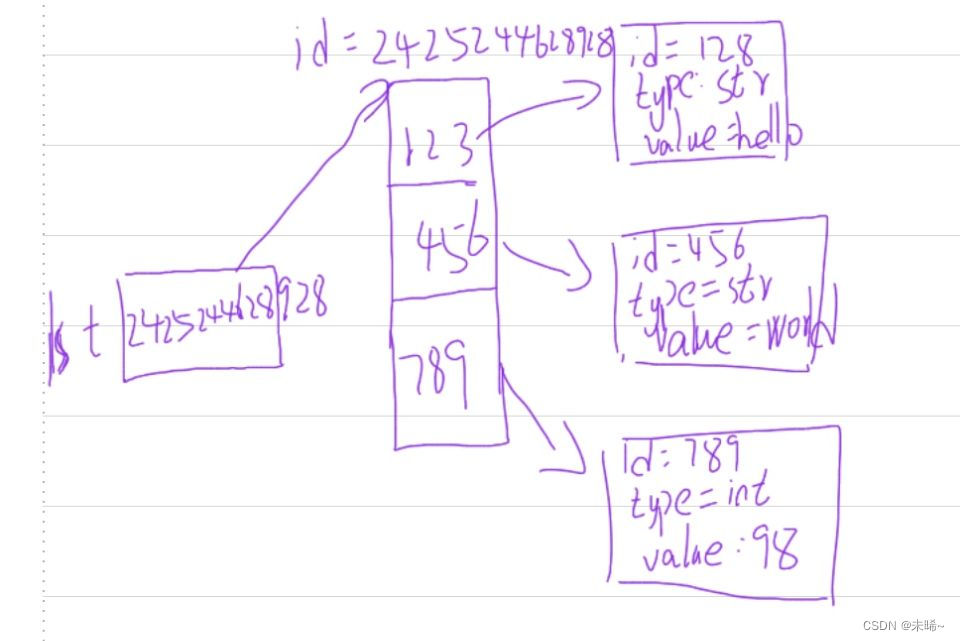 id = 2425244628928
id = 128
type: str
value =hello
123
456
789
lst
2425244628928
id=456
type=str
value =world
id=789
type=int
value:98
CSDN @未晞~